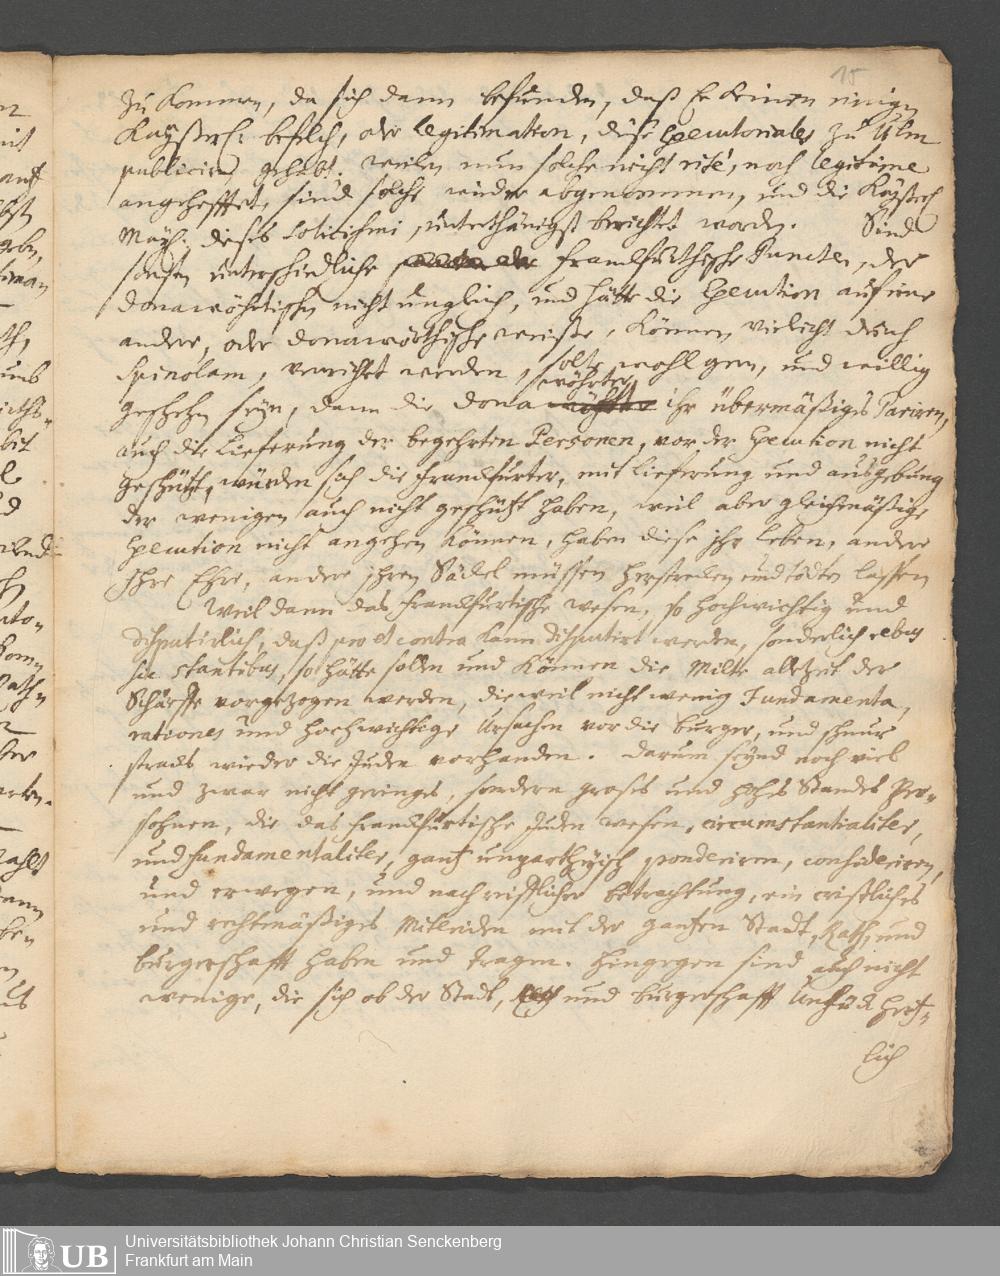 15
zu kommen, da sich dann befunden, daß Er keinen einigen
Kayßerl: befelch, oder Legitimation, diese Executoriales zu Ulm
publiciren gehabt. weilen nun solche nicht rité, noch legitimé
angehefftet, sind solche wieder abgenommen, und die Kayßerl
Mayst: dieses Loticchmi, unterthänigst berichtet worden. Sind
sonsten unterschiedliche Francfurthische Puncten, der
donawöhrtischen nicht unglich, und hätte die Execution auf eine
andere, oder donawörthische weisse, können vielicht durch
Spinolam, verrichtet werden, solte wohl gern, und willig
geschehen seyn, dann die dona wöhrter ihr übermäßiges Pariren,
auch die Lieferung der begehrten Personen, vor der Execution nicht
geschützt, würden sich die francfurter, mit lieferung und ausgebung
der wenigen auch nicht geschützt haben, weil aber gleichmäßige
Execution nicht angehen können, haben diese ihr leben, andere
Ihre Ehre, andere ihren Säckel müssen herstrecken und tödten lassen
Weil dann das francfurtische wesen, so hochwichtig und
disputirlich, daß pro et contra kann disputirt werden, sonderlich rebus
sic stantibus, so hätte sollen und können die Milte allezeit der
Schärffe vorgezogen werden, dieweil nicht wenig Fundamenta,
rationes und hochwichtige Ursachen vor die burger, und schnur
stracks wieder die Juden vorhanden. darum seynd noch viel
und zwar nicht geringes, sondern groses und hohes Standes Per=
sohnen, die das francfurtische Juden wesen, circumstantialiter,
und fundamentaliter, gantz ungartheyisch ponderiren, consideriren,
und erwegen, und nach reifflicher betrachtung, ein cristliches
und rechtmäßiges Mitleiden mit der gantzen Stadt, Rath, und
burgerschafft haben und tragen. hingegen sind auch nicht
wenige, die sich ob der Stadt, Rath und burgerschafft Unglück hertz=
lich
UB
Universitätsbibliothek Johann Christian Senckenberg
Frankfurt am Main